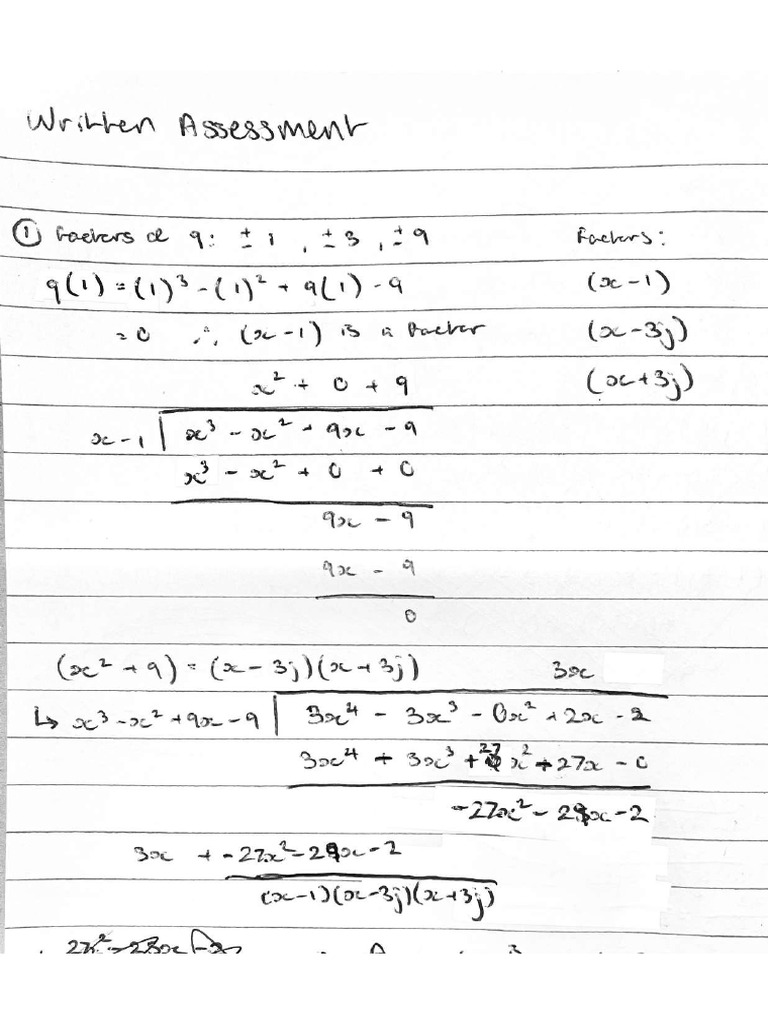 Written Assessment
① Factors of 9: ± 1, ± 3, ± 9 Factors:
q(1) = (1)³ - (1)² + 9(1) - 9 (x - 1)
= 0 ∴ (x - 1) is a factor (x - 3j)
x² + 0 + 9 (x + 3j)
x - 1 | x³ - x² + 9x - 9
x³ - x² + 0 + 0
9x - 9
9x - 9
0
(x² + 9) = (x - 3j)(x + 3j) 3x
↳ x³ - x² + 9x - 9 | 3x⁴ - 3x³ - 0x² + 2x - 2
3x⁴ + 3x³ + 27x² + 27x - 0
-27x² - 29x - 2
3x + -27x² - 29x - 2
(x - 1)(x - 3j)(x + 3j)